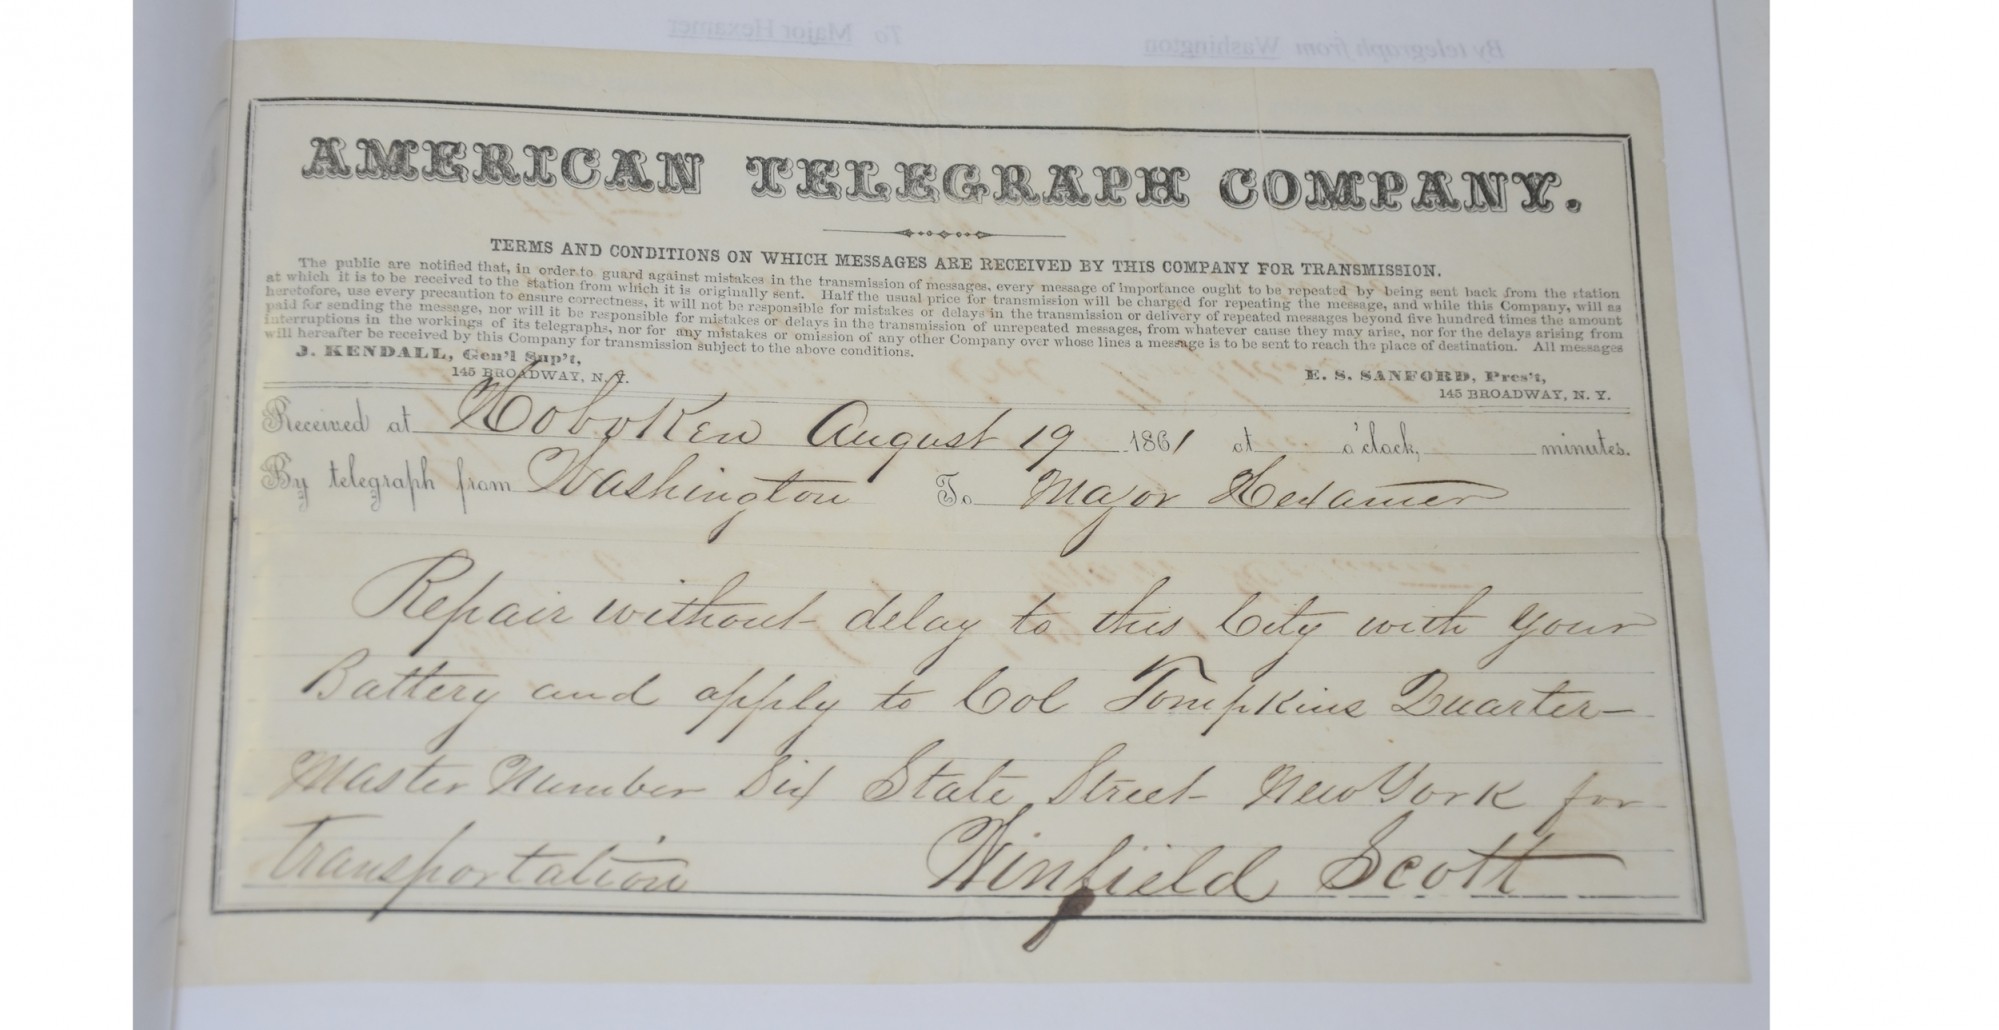 By telegraph from Washington To Major Hexamer
AMERICAN TELEGRAPH COMPANY.
TERMS AND CONDITIONS ON WHICH MESSAGES ARE RECEIVED BY THIS COMPANY FOR TRANSMISSION.
The public are notified that, in order to guard against mistakes in the transmission of messages, every message of importance ought to be repeated by being sent back from the station
at which it is to be received to the station from which it is originally sent. Half the usual price for transmission will be charged for repeating the message, and while this Company, will as
heretofore, use every precaution to ensure correctness, it will not be responsible for mistakes or delays in the transmission or delivery of repeated messages beyond five hundred times the amount
paid for sending the message, nor will it be responsible for mistakes or delays in the transmission of unrepeated messages, from whatever cause they may arise, nor for the delays arising from
interruptions in the workings of its telegraphs, nor for any mistakes or omission of any other Company over whose lines a message is to be sent to reach the place of destination. All messages
will hereafter be received by this Company for transmission subject to the above conditions.
J. KENDALL, Gen'l Sup't,
145 BROADWAY, N. Y.
E. S. SANFORD, Pres't,
145 BROADWAY, N. Y.
Received at Hoboken August 19 1861 at o'clock, minutes.
By telegraph from Washington To Major Hexamer
Repair without delay to this City with your
Battery and apply to Col Tompkins Quarter-
Master Number Six State Street New York for
transportation Winfield Scott